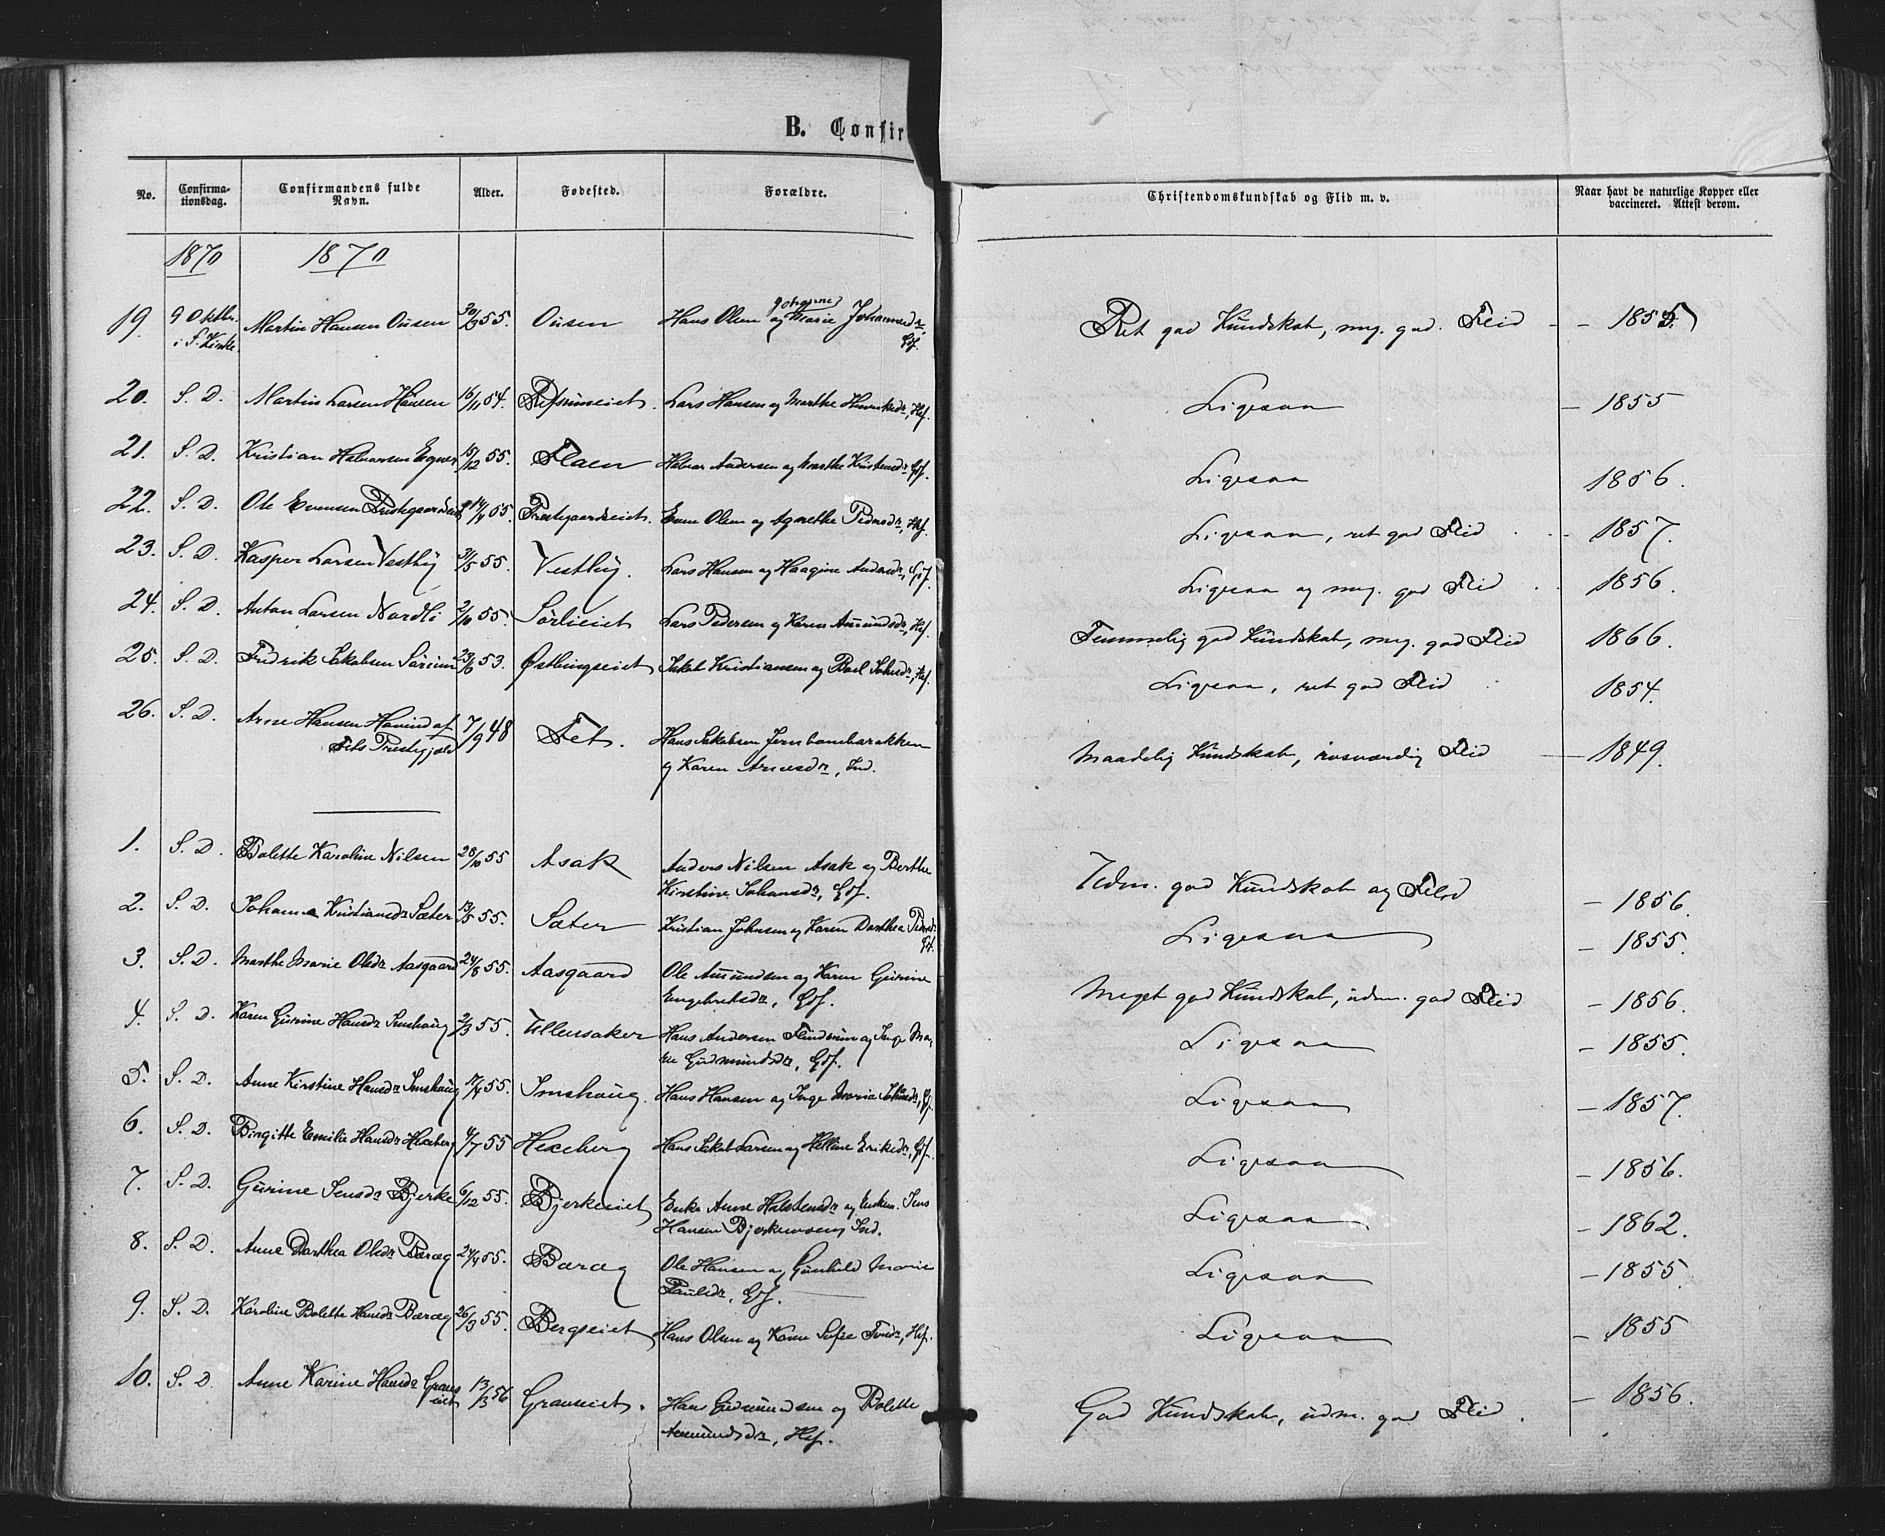 B. Confir
No.
Confirma-
tionsdag.
Confirmandens fulde
Navn.
Alder.
Fødested.
Forældre.
Christendomskundskab og Flid m. v.
Naar havt de naturlige Kopper eller
vaccineret. Attest derom.
1870 1870
19. 9 Oktbr. i S. Kirke Martin Hansen Ousen 55. Ousen Hans Olsen og Marie Ret god Kundskab, meg. god Flid
20. S. D. Martin Larsen Hansen 16/11 54. Lars Hansen og Marthe Ligesaa 1855
21. S. D. Kristian Halvorsen 15/12 55. Flaen Halvor Andersen og Marthe Ligesaa 1856.
22. S. D. Ole Evensen Prestegaardseiet 55. Prestegaardseiet. Even Olsen og Agnethe Pedersdr, Hsf. Ligesaa, ret god Flid 1857.
23. S. D. Kasper Larsen Vestby 31/5 55. Vestby. Lars Hansen og Haagine Andersdr, Gf. Ligesaa og meg. god Flid 1856.
24. S. D. Anton Larsen Nordli 2/10 55. Sörlieiet Lars Pedersen og Karen Amundsdr, Hsf. Temmelig god Kundskab, meg. god Flid 1866.
25. S. D. Fredrik Jakobsen 23/6 53. Østbyngseiet Jakob Kristiansen og Ligesaa, ret god Flid 1854.
26. S. D. Arne Hansen af
Fets Prestegjæld 7/9 48 Fet. Hans Jakobsen Jernbanebarakken
og Karen Arnesdr, Ind. Maadelig Kundskab, rosværdig Flid 1849.
1. S. D. Bolette Karoline Nilsen 28/10 55 Asak Anders Nilsen Asak og Berthe
Kirstine Johansdr, Gdf. Udm. god Kundskab og Flid 1856.
2. S. D. Johanne Kristiansdr Sæter 13/5 55. Sæter Kristian Johnsen og Karen Dorthea Ligesaa 1855.
3. S. D. Marthe Marie Olsdr Aasgaard 24/8 55. Aasgaard Ole Amundsen og Karen Gurine
Engebretsdr, Gdf. Meget god Kundskab, udm. god Flid 1856.
4. S. D. Karen Gurine Hansdr Imshaug 2/3 55. Ullensaker Hans Andersen og Inge Ma-
rie Gudmundsdr, Gdf. Ligesaa 1855.
5. S. D. Anne Kirstine Hansdr Imshaug 55. Imshaug. Hans Hansen og Inge Maria Ligesaa 1857.
6. S. D. Birgitte Emilie Hansdr Hexeberg 4/7 55 Hexeberg Hans Jakob Larsen og Helline Eriksdr, Gdf. Ligesaa 1856.
7. S. D. Gurine Jensdr Bjerke 6/12 55. Bjerkeeiet Enke Anne Halstensdr og Enkem. Jens
Hansen Ind. Ligesaa 1862.
8. S. D. Anne Dorthea Olsdr Bæræg 24/4 55. Bæræg Ole Hansen og Gunhild Marie
Paulsdr, Gdf. Ligesaa 1855.
9. S. D. Karoline Bolette Hansdr Bæræg 26/3 55. Bergseiet Hans Olsen og Karen Sofie Hsf. Ligesaa 1855
10. S. D. Anne Karine Hansdr Graus
eiet 13/3 56 Grauseiet. Hans Gudmundsen og Bolette
Amundsdr, Hsf. God Kundskab, udm. god Flid. 1856.